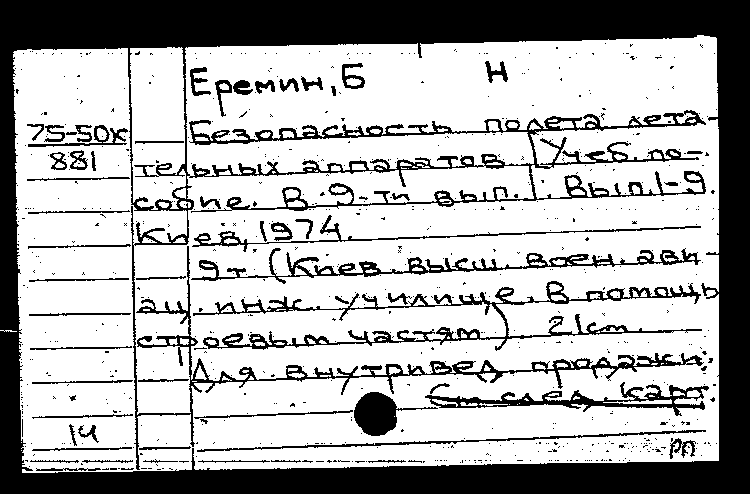 Еремин, Б Н
75-50к Безопасность полета лета-
881 тельных аппаратов [Учеб. по-
собие. В 9-ти вып.]. Вып. 1-9.
Киев, 1974.
9т (Киев. высш. воен. ави-
ац. инж. училище. В помощь
строевым частям) 21cm.
Для внутривед. продажи.
См след. карт.
14
РП